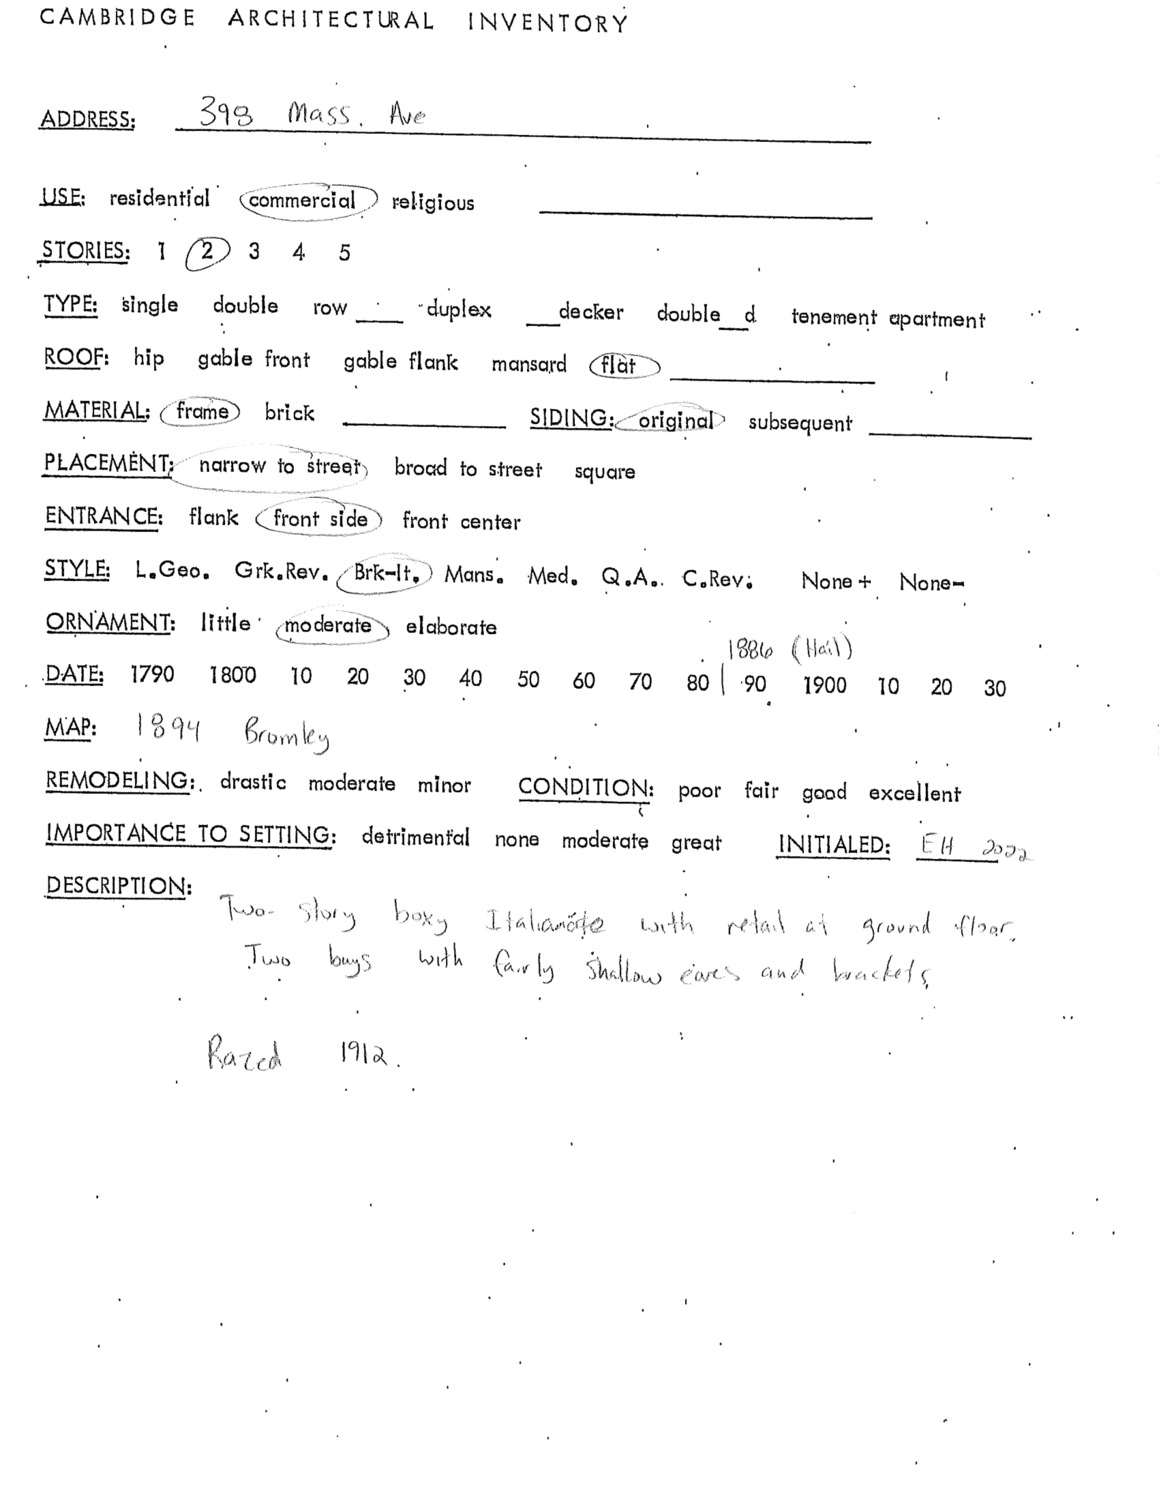 CAMBRIDGE ARCHITECTURAL INVENTORY
ADDRESS: 398 Mass. Ave
USE: residential commercial religious
STORIES: 1 2 3 4 5
TYPE: single double row ___ duplex ___decker double___d tenement apartment
ROOF: hip gable front gable flank mansard flat
MATERIAL: frame brick SIDING: original subsequent
PLACEMENT: narrow to street broad to street square
ENTRANCE: flank front side front center
STYLE: L.Geo. Grk.Rev. Brk-It. Mans. Med. Q.A. C.Rev. None+ None-
ORNAMENT: little moderate elaborate
1886 (Hail)
DATE: 1790 1800 10 20 30 40 50 60 70 80 | 90 1900 10 20 30
MAP: 1894 Bromley
REMODELING: drastic moderate minor CONDITION: poor fair good excellent
IMPORTANCE TO SETTING: detrimental none moderate great INITIALED: EH 2022
DESCRIPTION:
Two-story boxy Italianate with retail at ground floor.
Two bays with fairly shallow eaves and brackets.
Razed 1912.